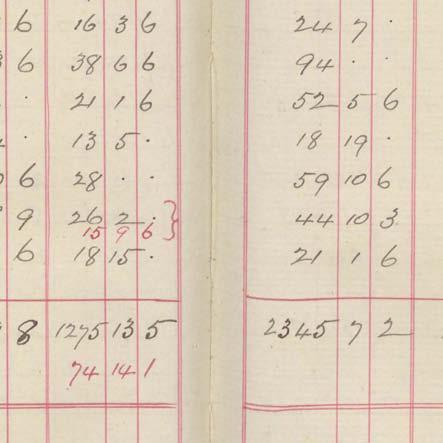 6 16 3 6 24 7 ·
6 38 6 6 94 · ·
· 21 1 6 52 5 6
· 13 5 · 18 19 ·
6 28 · · 59 10 6
9 26 2 · 44 10 3
15 9 6
6 18 15 · 21 1 6
8 1275 13 5 2345 7 2
74 14 1